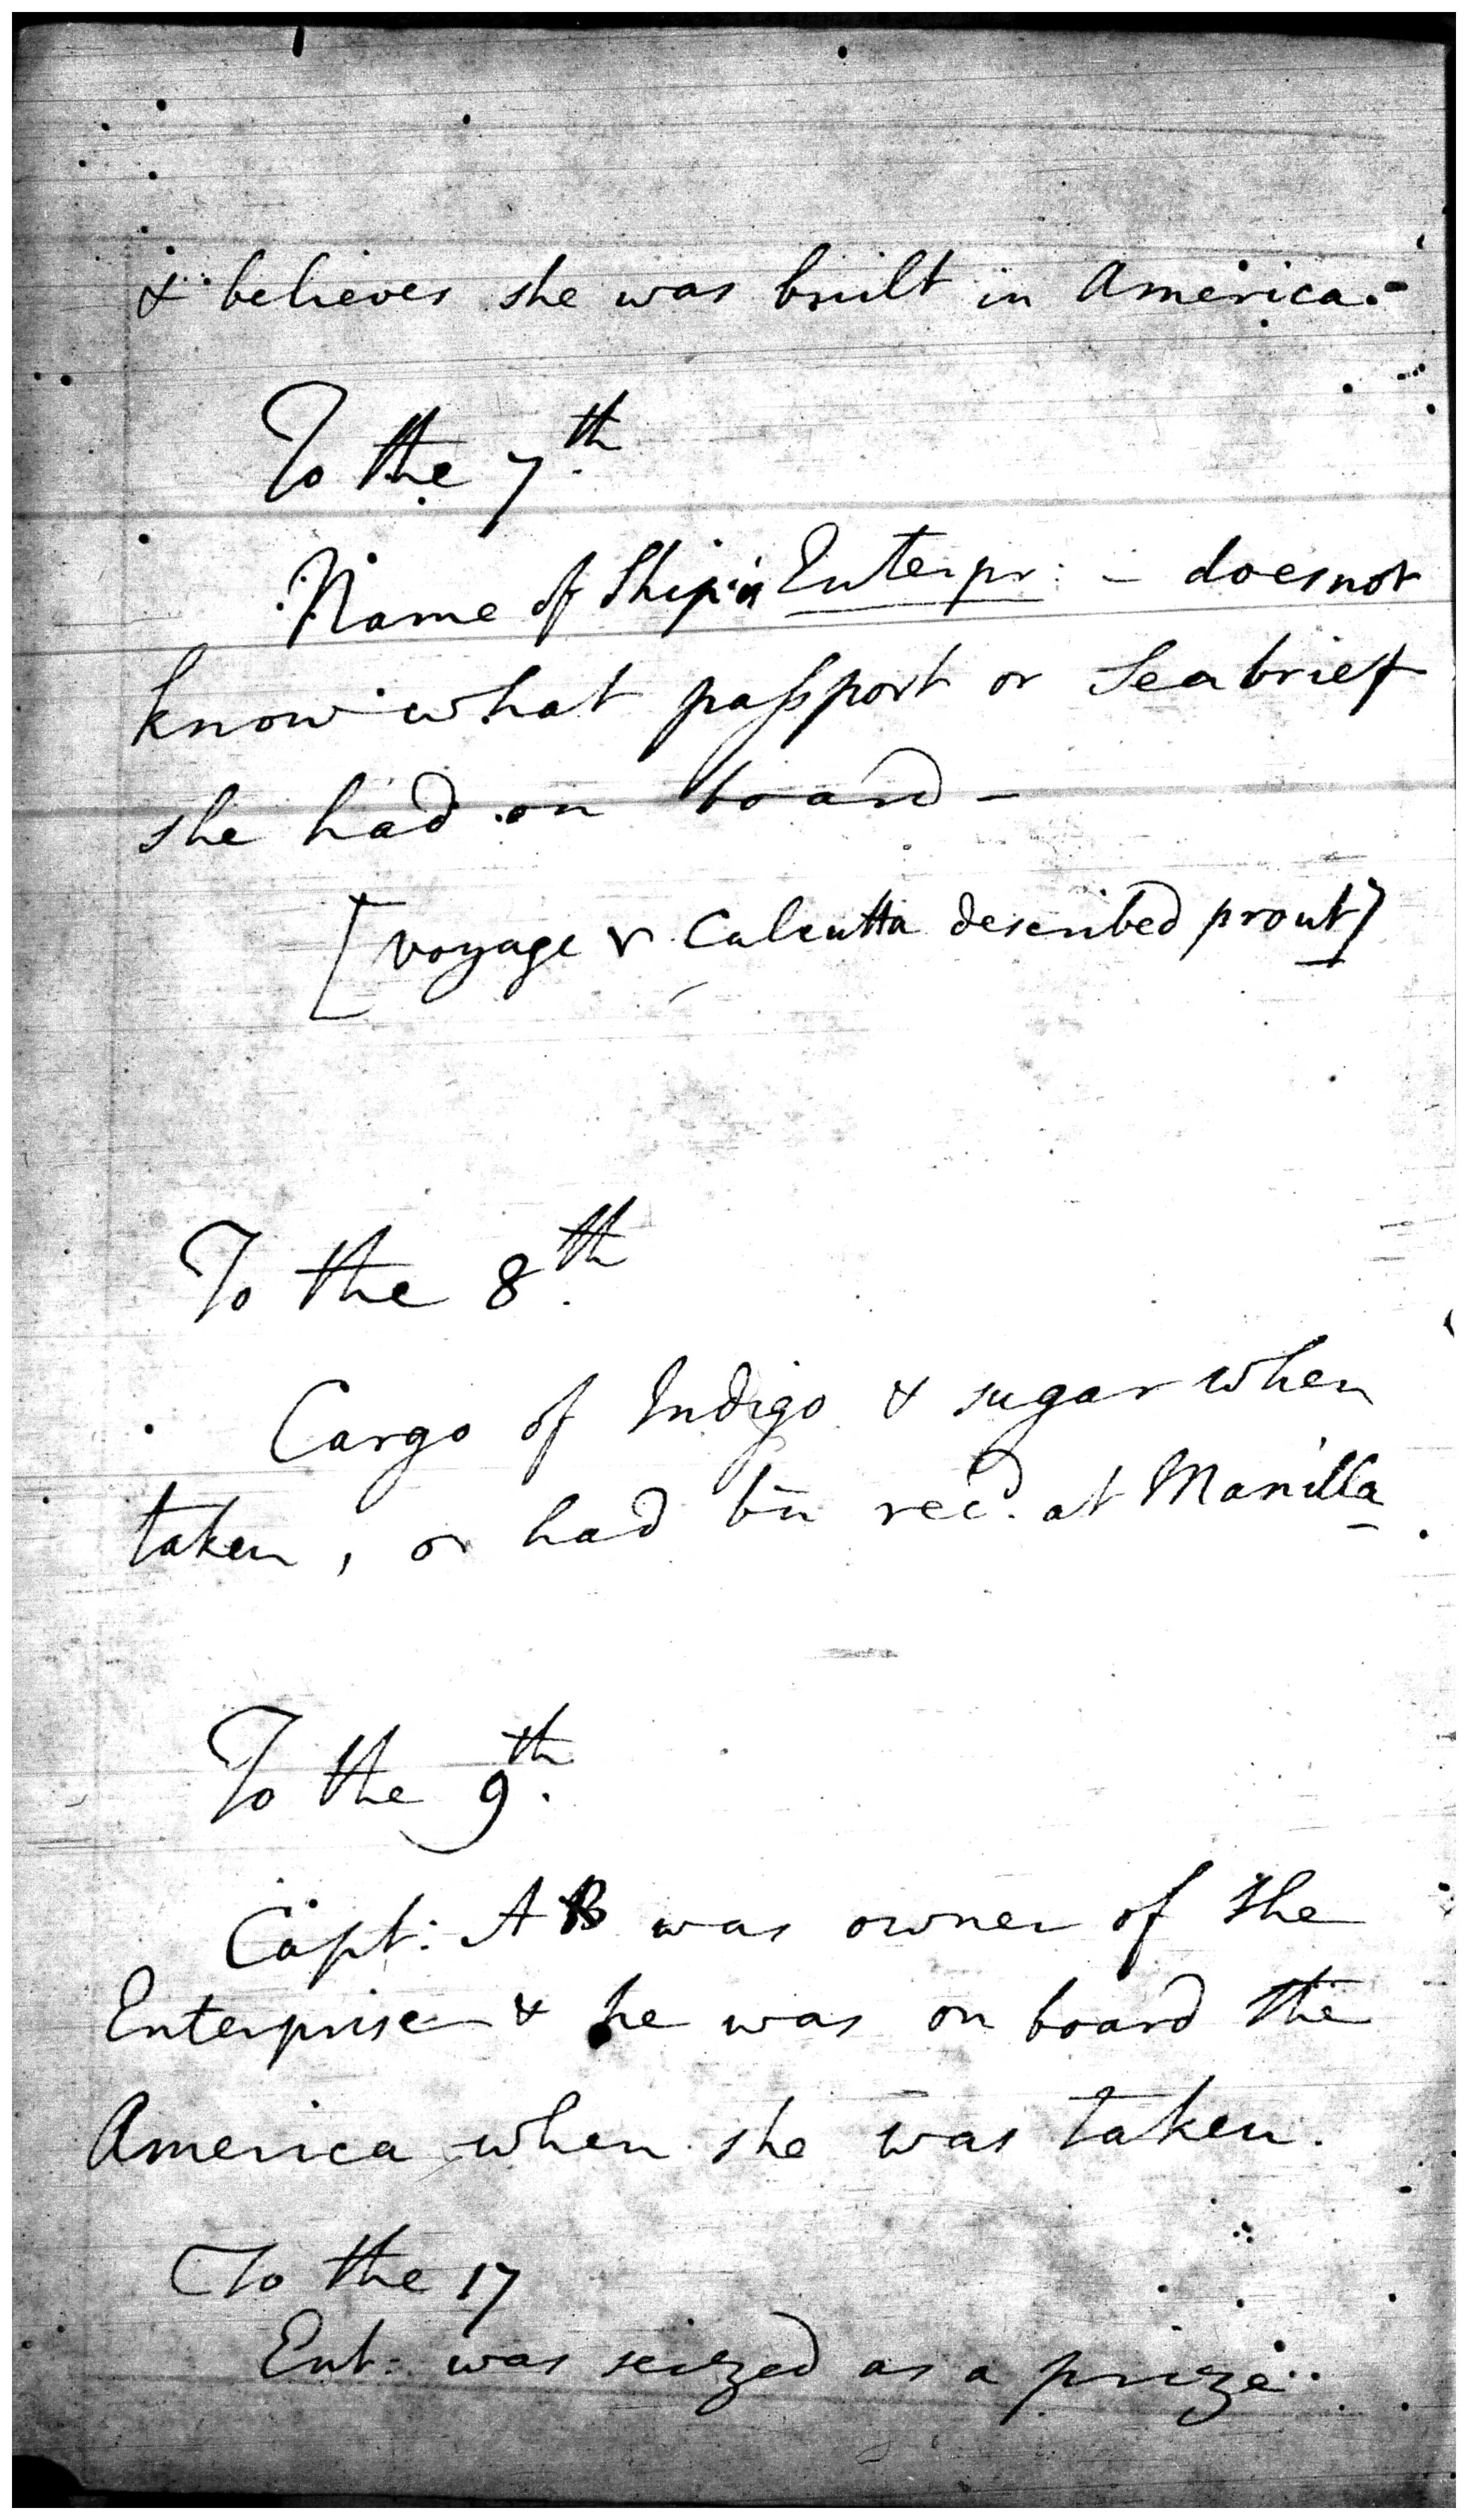 & believes she was built in America.-
To the 7th.
Name of Ship is Enterpr: - does not
know what passport or Sea brief
she had on board -
[voyage & Calcutta described prout]
To the 8th.
Cargo of Indigo & sugar when
taken, or had bn recd. at Manilla.
To the 9th.
Capt: AB was owner of the
Enterprise & he was on board the
America when she was taken.
To the 17
Ent: was seized as a prize.